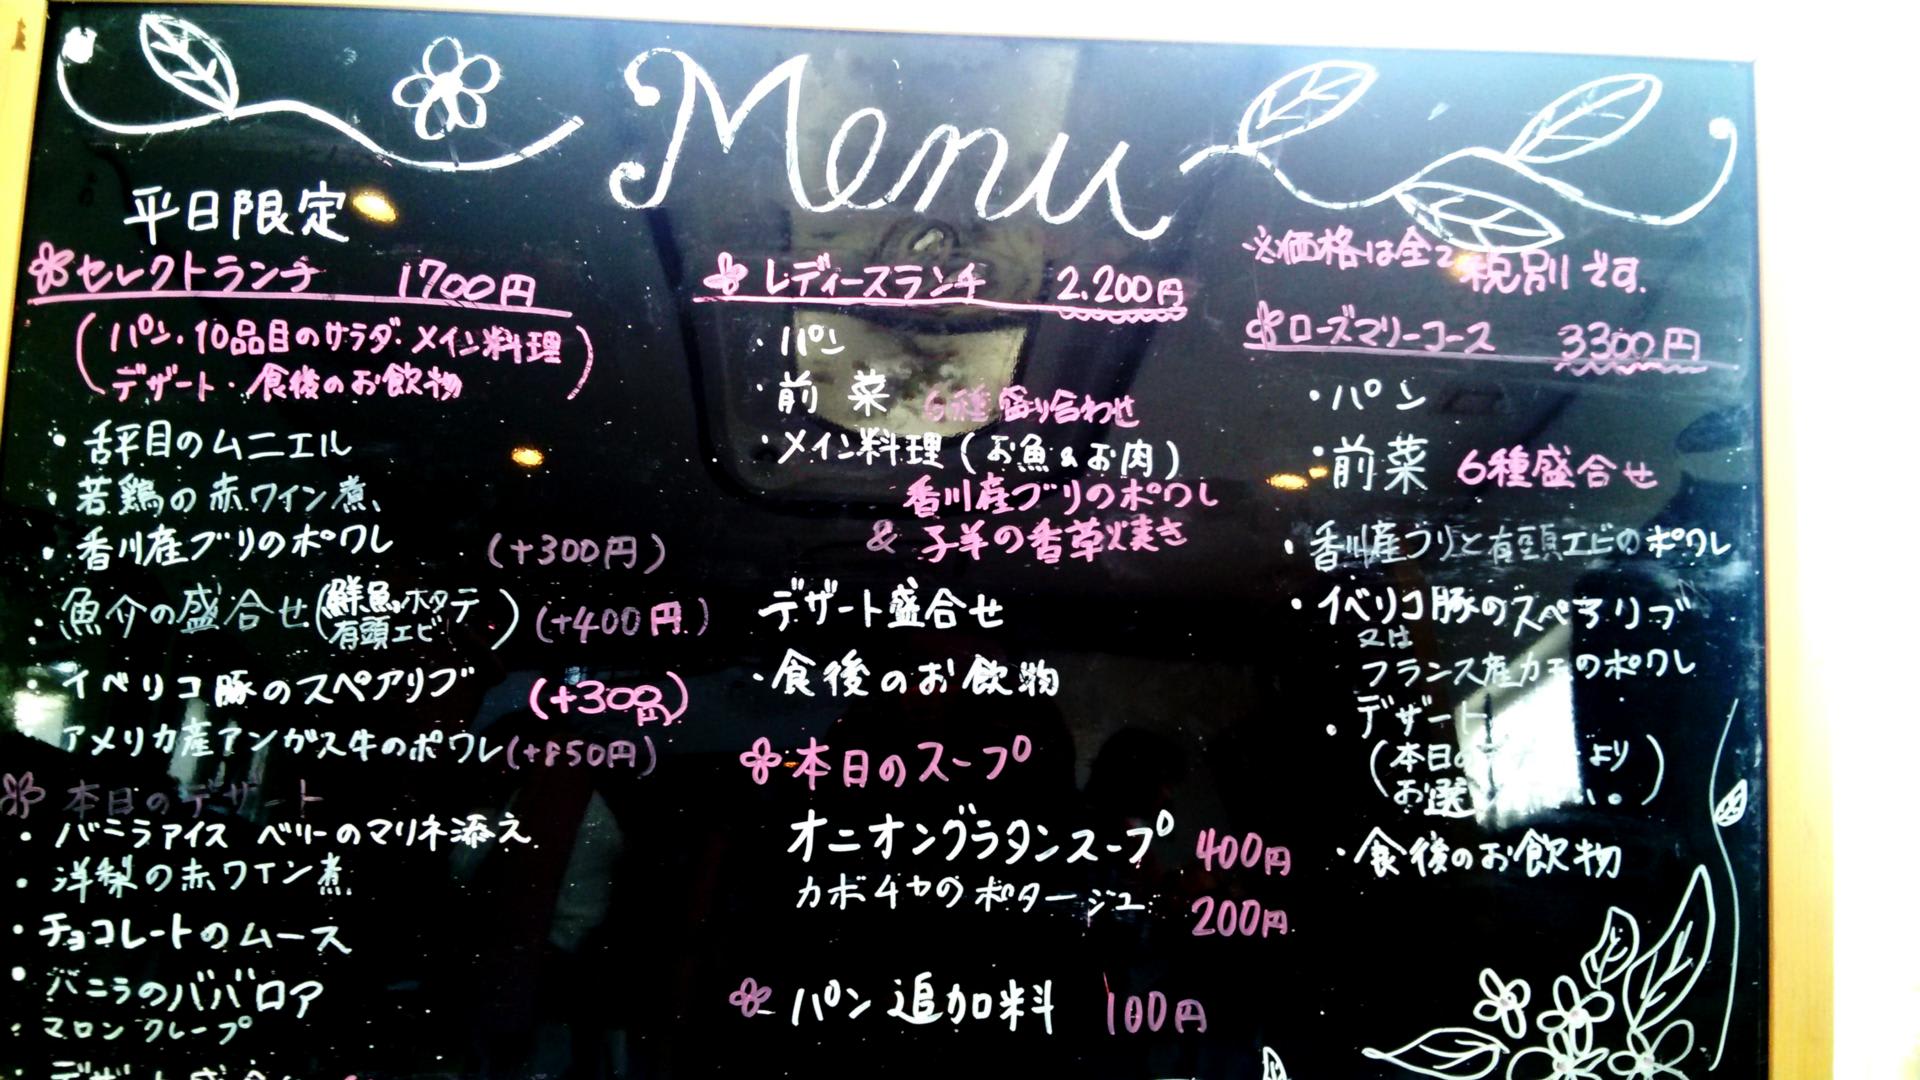 Menu
平日限定
セレクトランチ 1700円
(パン・10品目のサラダ・メイン料理
デザート・食後のお飲物)
・舌平目のムニエル
・若鶏の赤ワイン煮
・香川産ブリのポワレ (+300円)
・魚介の盛合せ(鮮魚・ホタテ
有頭エビ) (+400円)
・イベリコ豚のスペアリブ (+300円)
アメリカ産アンガス牛のポワレ(+850円)
本日のデザート
・バニラアイス ベリーのマリネ添え
・洋梨の赤ワイン煮
・チョコレートのムース
・バニラのババロア
・マロンクレープ
レディースランチ 2.200円
・パン
・前菜 6種盛り合わせ
・メイン料理(お魚&お肉)
香川産ブリのポワレ
& 子羊の香草焼き
デザート盛合せ
・食後のお飲物
本日のスープ
オニオングラタンスープ 400円
カボチャのポタージュ 200円
パン追加料 100円
※価格は全て税別です.
ローズマリーコース 3300円
・パン
・前菜 6種盛合せ
・香川産ブリと有頭エビのポワレ
・イベリコ豚のスペアリブ
又は
フランス産カモのポワレ
・デザート
(本日の より
お選 )
・食後のお飲物